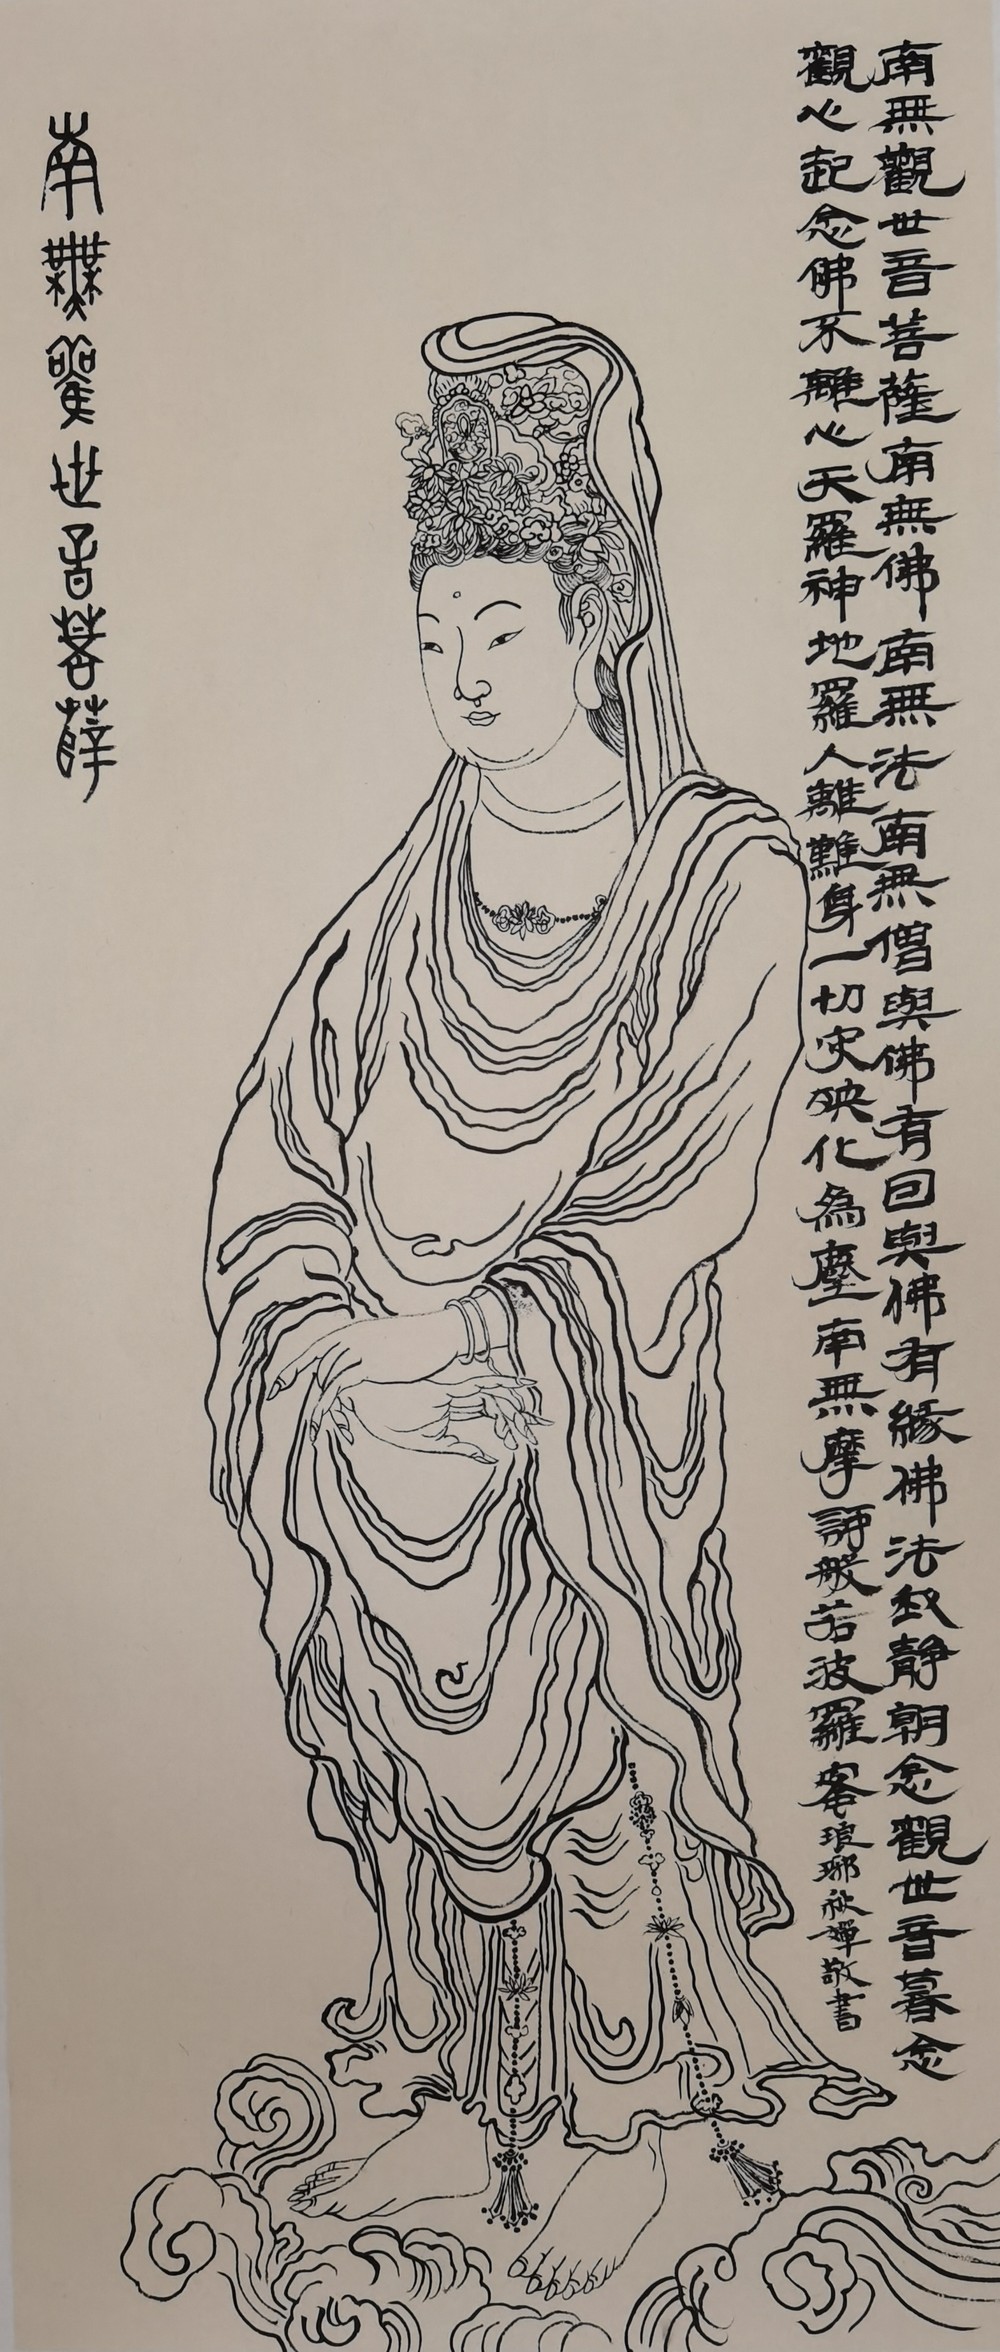 南無觀世音菩薩南無佛南無法南無僧與佛有回與佛有緣佛法我静朝念觀世音暮念
觀心起念佛不離心天羅神地羅人離難身一切灾殃化為塵南無摩訶般若波羅蜜琅琊秋禪敬書
南無觀世音菩薩